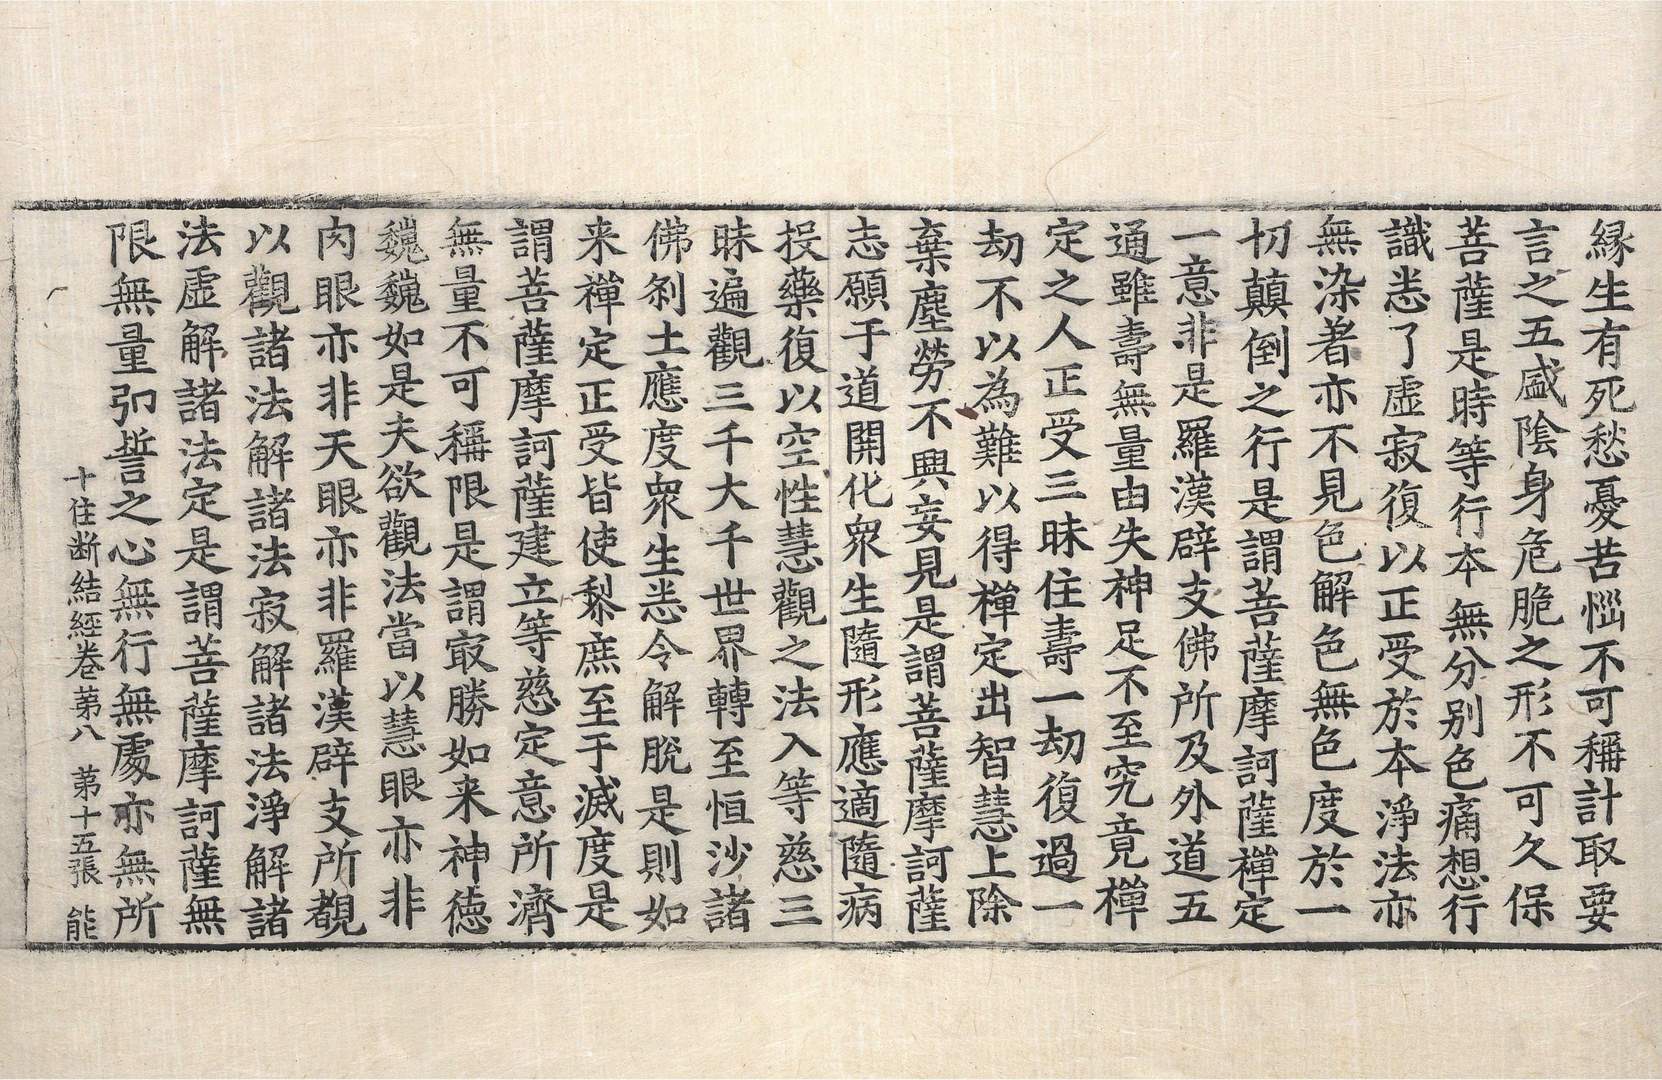 緣生有死愁憂苦惱不可稱計取要
言之五盛陰身危脆之形不可久保
菩薩是時等行本無分別色痛想行
識悉了虛寂復以正受於本淨法亦
無染著亦不見色解色無色度於一
切顛倒之行是謂菩薩摩訶薩禪定
一意非是羅漢辟支佛所及外道五
通雖壽無量由失神足不至究竟禪
定之人正受三昧住壽一劫復過一
劫不以為難以得禪定出智慧上除
棄塵勞不興妄見是謂菩薩摩訶薩
志願于道開化眾生隨形應適隨病
投藥復以空性慧觀之法入等慈三
昧遍觀三千大千世界轉至恒沙諸
佛剎土應度眾生悉令解脫是則如
来禪定正受皆使黎庶至于滅度是
謂菩薩摩訶薩建立等慈定意所濟
無量不可稱限是謂㝡勝如来神德
巍巍如是夫欲觀法當以慧眼亦非
肉眼亦非天眼亦非羅漢辟支所覩
以觀諸法解諸法寂解諸法淨解諸
法虛解諸法定是謂菩薩摩訶薩無
限無量弘誓之心無行無處亦無所
十住断結經卷苐八　苐十五張　能